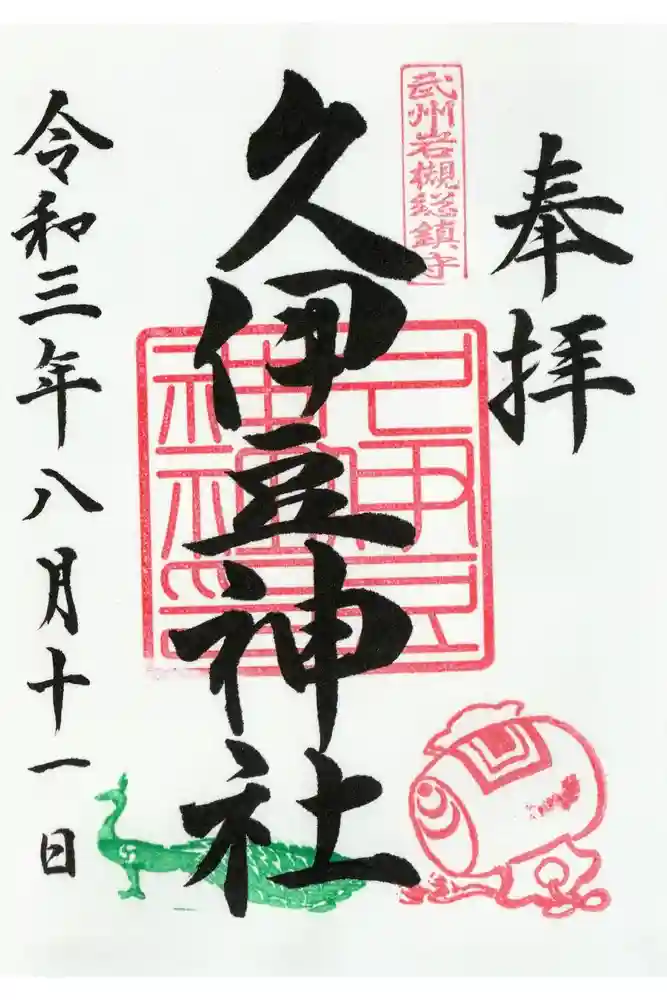 奉拝
武州岩槻総鎮守
久伊豆神社
令和三年八月十一日